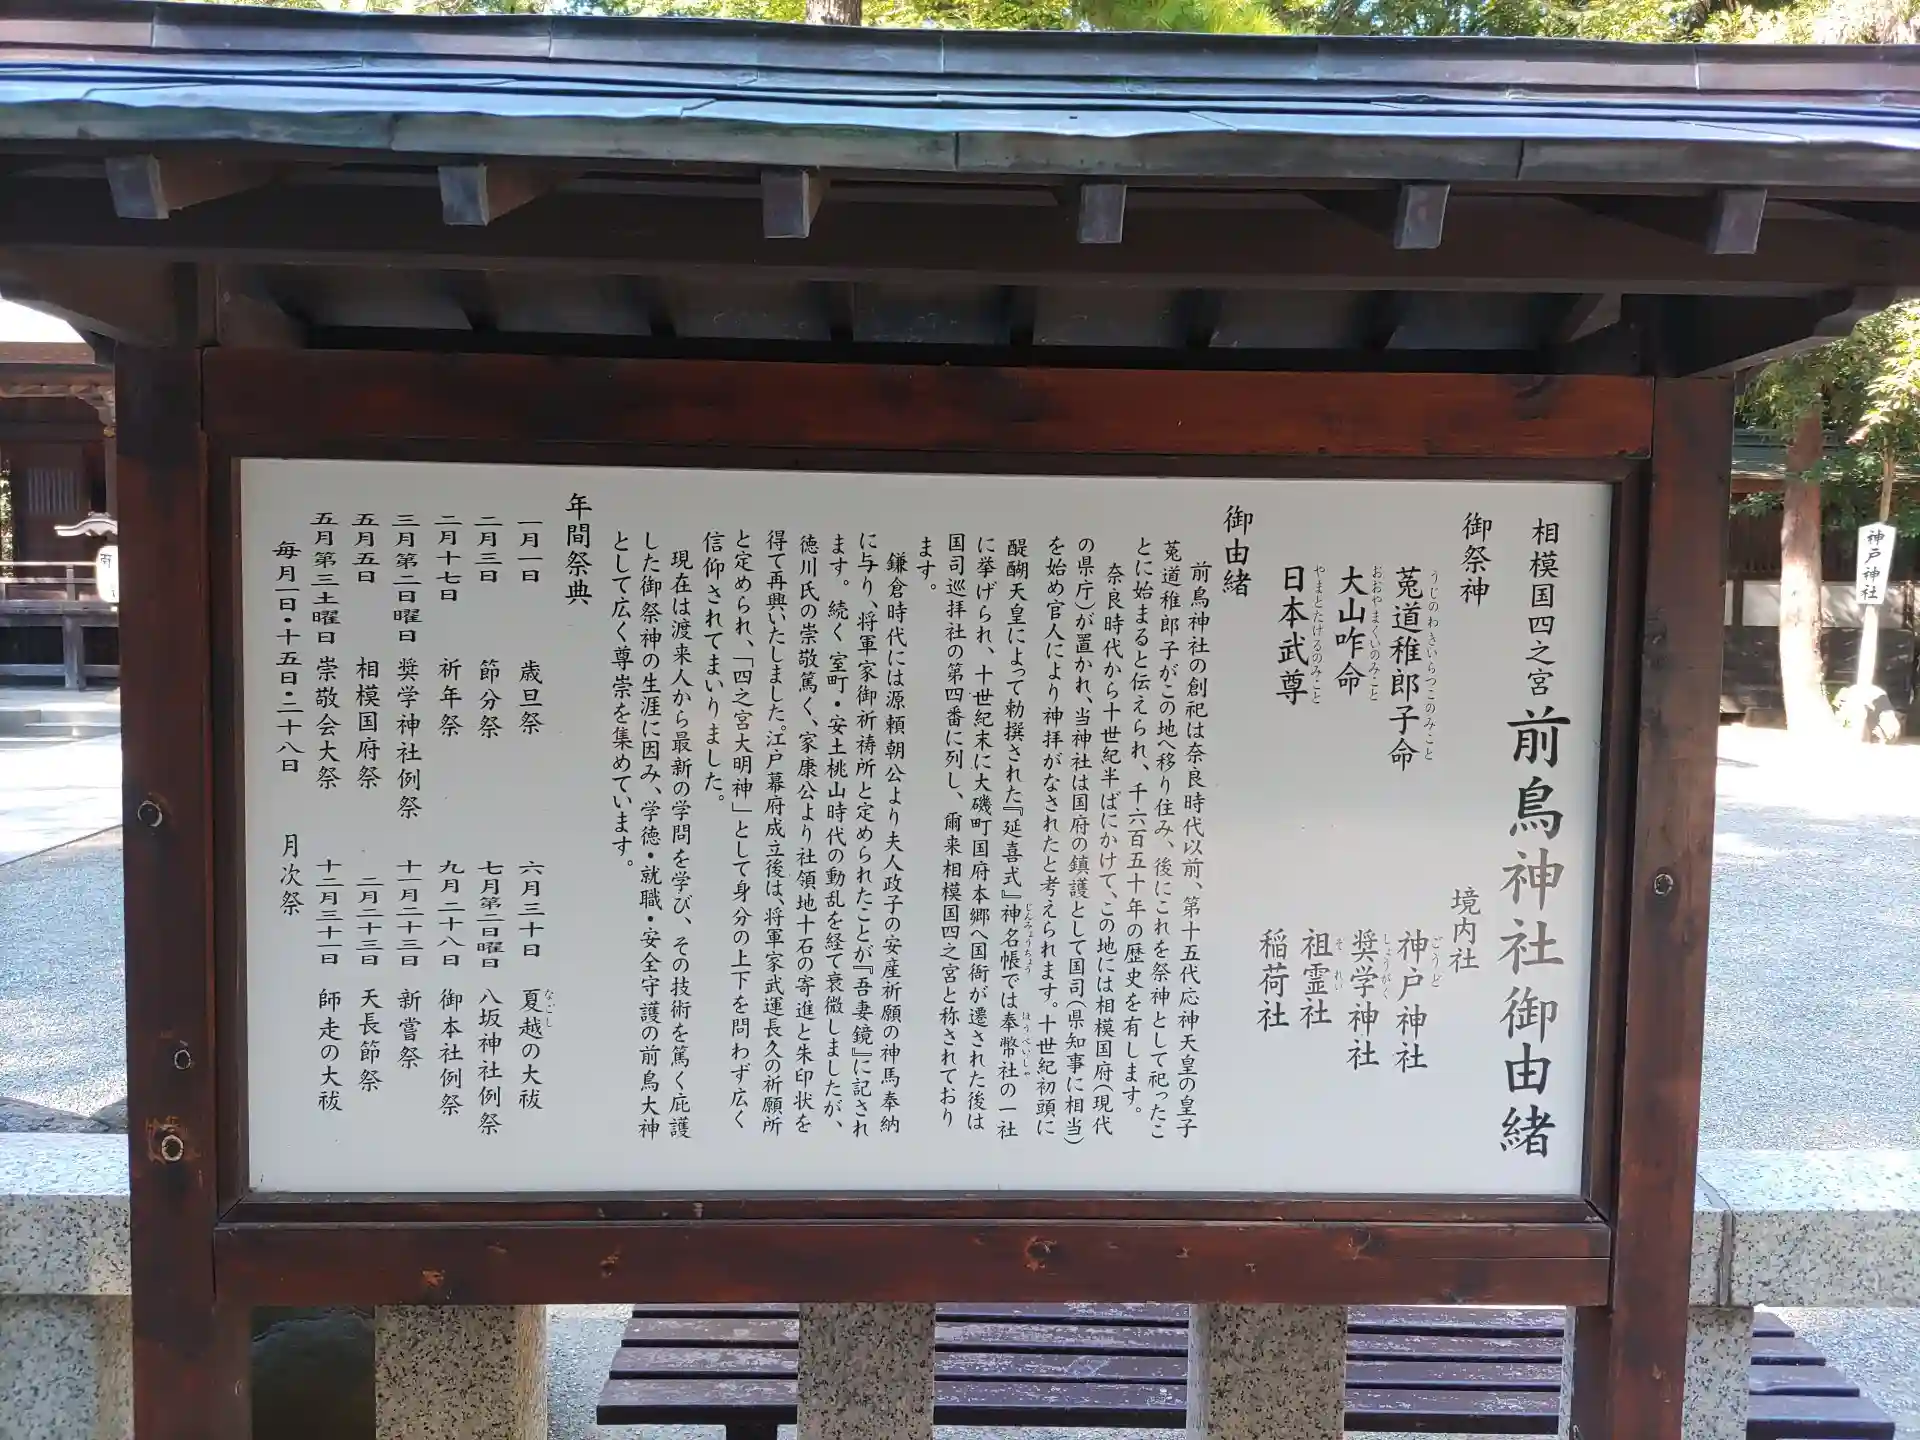 相模国四之宮 前鳥神社御由緒
御祭神
うじのわきいらつこのみこと
菟道稚郎子命
おおやまくいのみこと
大山咋命
やまとたけるのみこと
日本武尊
境内社
ごうど
神戸神社
しょうがく
奨学神社
それい
祖霊社
稲荷社
御由緒
前鳥神社の創祀は奈良時代以前、第十五代応神天皇の皇子
菟道稚郎子がこの地へ移り住み、後にこれを祭神として祀ったこ
とに始まると伝えられ、千六百五十年の歴史を有します。
奈良時代から十世紀半ばにかけて、この地には相模国府(現代
の県庁)が置かれ、当神社は国府の鎮護として国司(県知事に相当)
を始め官人により神拝がなされたと考えられます。十世紀初頭に
じんみょうちょう ほうべいしゃ
醍醐天皇によって勅撰された『延喜式』神名帳では奉幣社の一社
に挙げられ、十世紀末に大磯町国府本郷へ国衙が遷された後は
国司巡拝社の第四番に列し、爾来相模国四之宮と称されており
ます。
鎌倉時代には源頼朝公より夫人政子の安産祈願の神馬奉納
に与り、将軍家御祈祷所と定められたことが『吾妻鏡』に記され
ます。続く室町・安土桃山時代の動乱を経て衰微しましたが、
徳川氏の崇敬篤く、家康公より社領地十石の寄進と朱印状を
得て再興いたしました。江戸幕府成立後は、将軍家武運長久の祈願所
と定められ、「四之宮大明神」として身分の上下を問わず広く
信仰されてまいりました。
現在は渡来人から最新の学問を学び、その技術を篤く庇護
した御祭神の生涯に因み、学徳・就職・安全守護の前鳥大神
として広く尊崇を集めています。
年間祭典
一月一日 歳旦祭
二月三日 節分祭
二月十七日 祈年祭
三月第二日曜日 奨学神社例祭
五月五日 相模国府祭
五月第三土曜日 崇敬会大祭
毎月一日・十五日・二十八日 月次祭
なごし
六月三十日 夏越の大祓
七月第二日曜日 八坂神社例祭
九月二十八日 御本社例祭
十一月二十三日 新嘗祭
二月二十三日 天長節祭
十二月三十一日 師走の大祓
神戸神社